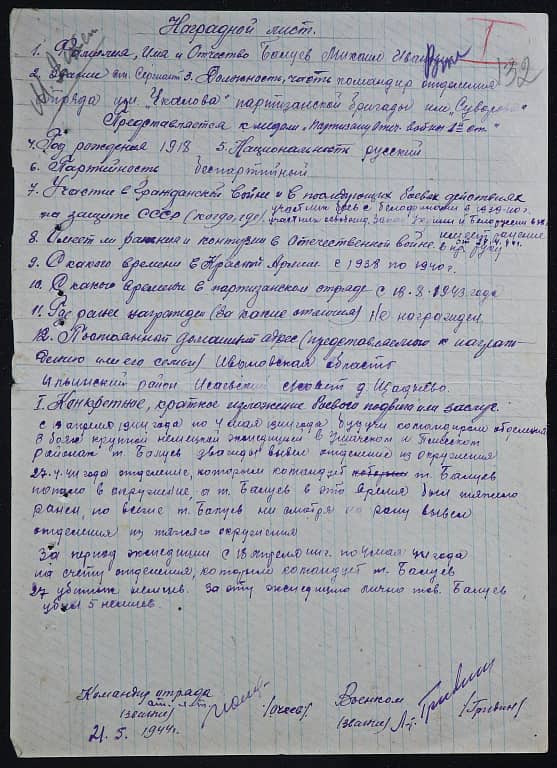 Наградной лист.
I
132
1. Фамилия, Имя и Отчество Балуев Михаил
2. Звание ст. Сержант 3. Должность, часть командир отделения
отряда им. "Чкалова" партизанской бригады им. "Суворова"
Представляется к медали "Партизану Отеч. войны 1й ст."
4. Год рождения 1918 5. Национальность русский
6. Партийность беспартийный
7. Участие в Гражданской войне и в последующих боевых действиях
по защите СССР (когда, где) участник боев с белофинами в 1939-40 г.
участник освобожд. Запад. Украины и Белоруссии в
8. Имеет ли ранения и контузии в Отечественной войне имеет ранение
в руку
9. С какого времени в Красной Армии с 1938 по 1940 г.
10. С какого времени в партизанском отряде с 18.8.1943 года
11. Где ранее награжден (за какие отличия) Не награжден
12. Постоянный домашний адрес (представляемого к награж-
дению или его семьи) Ивановская область
Ильинский район совет д. Щадн
I. Конкретное, краткое изложение боевого подвига или заслуг
апреля 1944 года по 4 мая 1944 года будучи командиром отделения
в боях крупной немецкой экспедицией в Ушачском и
районах т. Балуев дважды вывел отделение из окружения
27.4.44 года отделение, которым командует т. Балуев
попало в окружение, а т. Балуев в это время был тяжело
ранен, но все же т. Балуев не смотря на рану вывел
отделения из тяжелого окружения
За период экспедиции с 18 апреля по 4 мая 44 года
на счету отделения, которым командует т. Балуев
27 убитых немцев. За эту экспедицию лично тов. Балуев
убил 5 немцев.
Командир отряда
ст. л-т.
(звание)
Военком
(звание) Л-т. Гривин (Гривин)
21.5.1944 г.